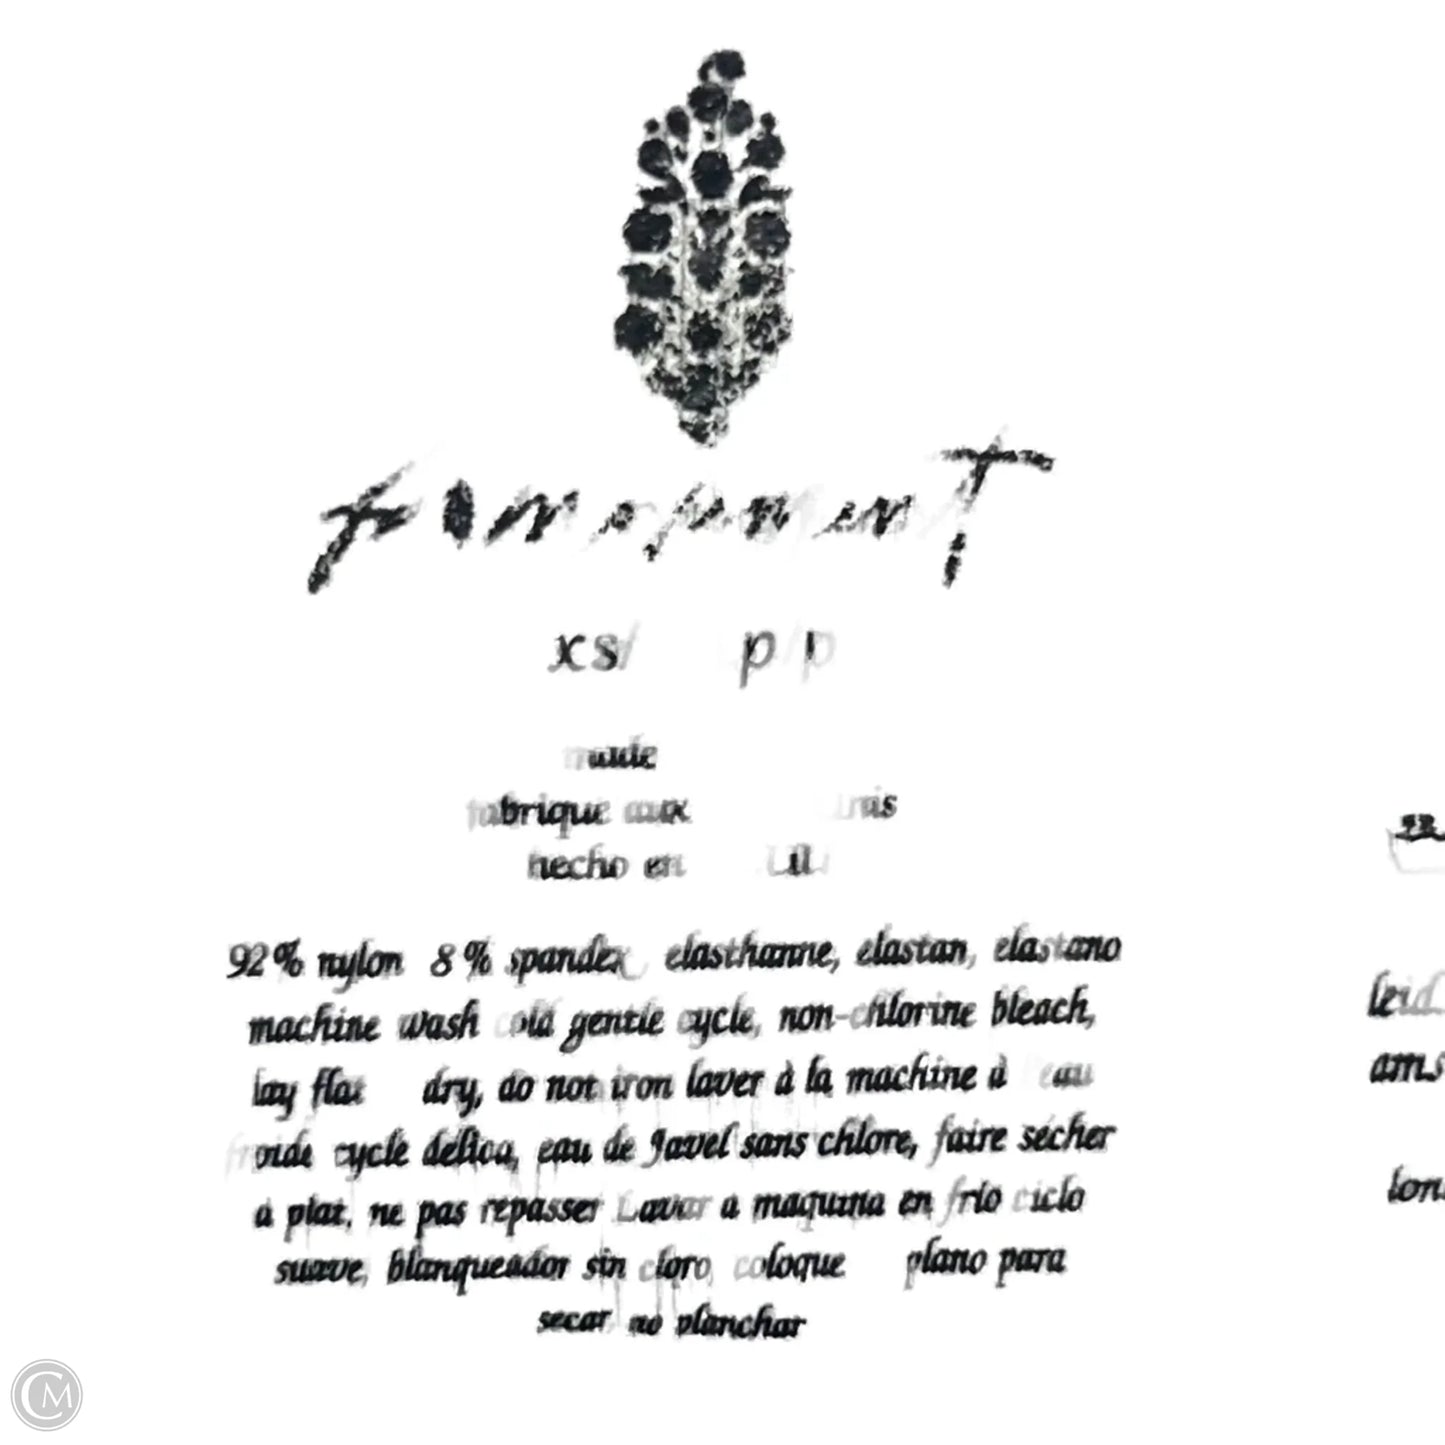 xs/ p/p
made
fabrique aux
hecho en
92% nylon 8% spandex elasthanne, elastan, elastano
machine wash cold gentle cycle, non-chlorine bleach,
lay flat dry, do not iron laver à la machine à l'eau
froide cycle délica, eau de Javel sans chlore, faire sécher
à plat, ne pas repasser Lavar a maquina en frío ciclo
suave, blanqueador sin cloro, coloque plano para
secar, no planchar
CM